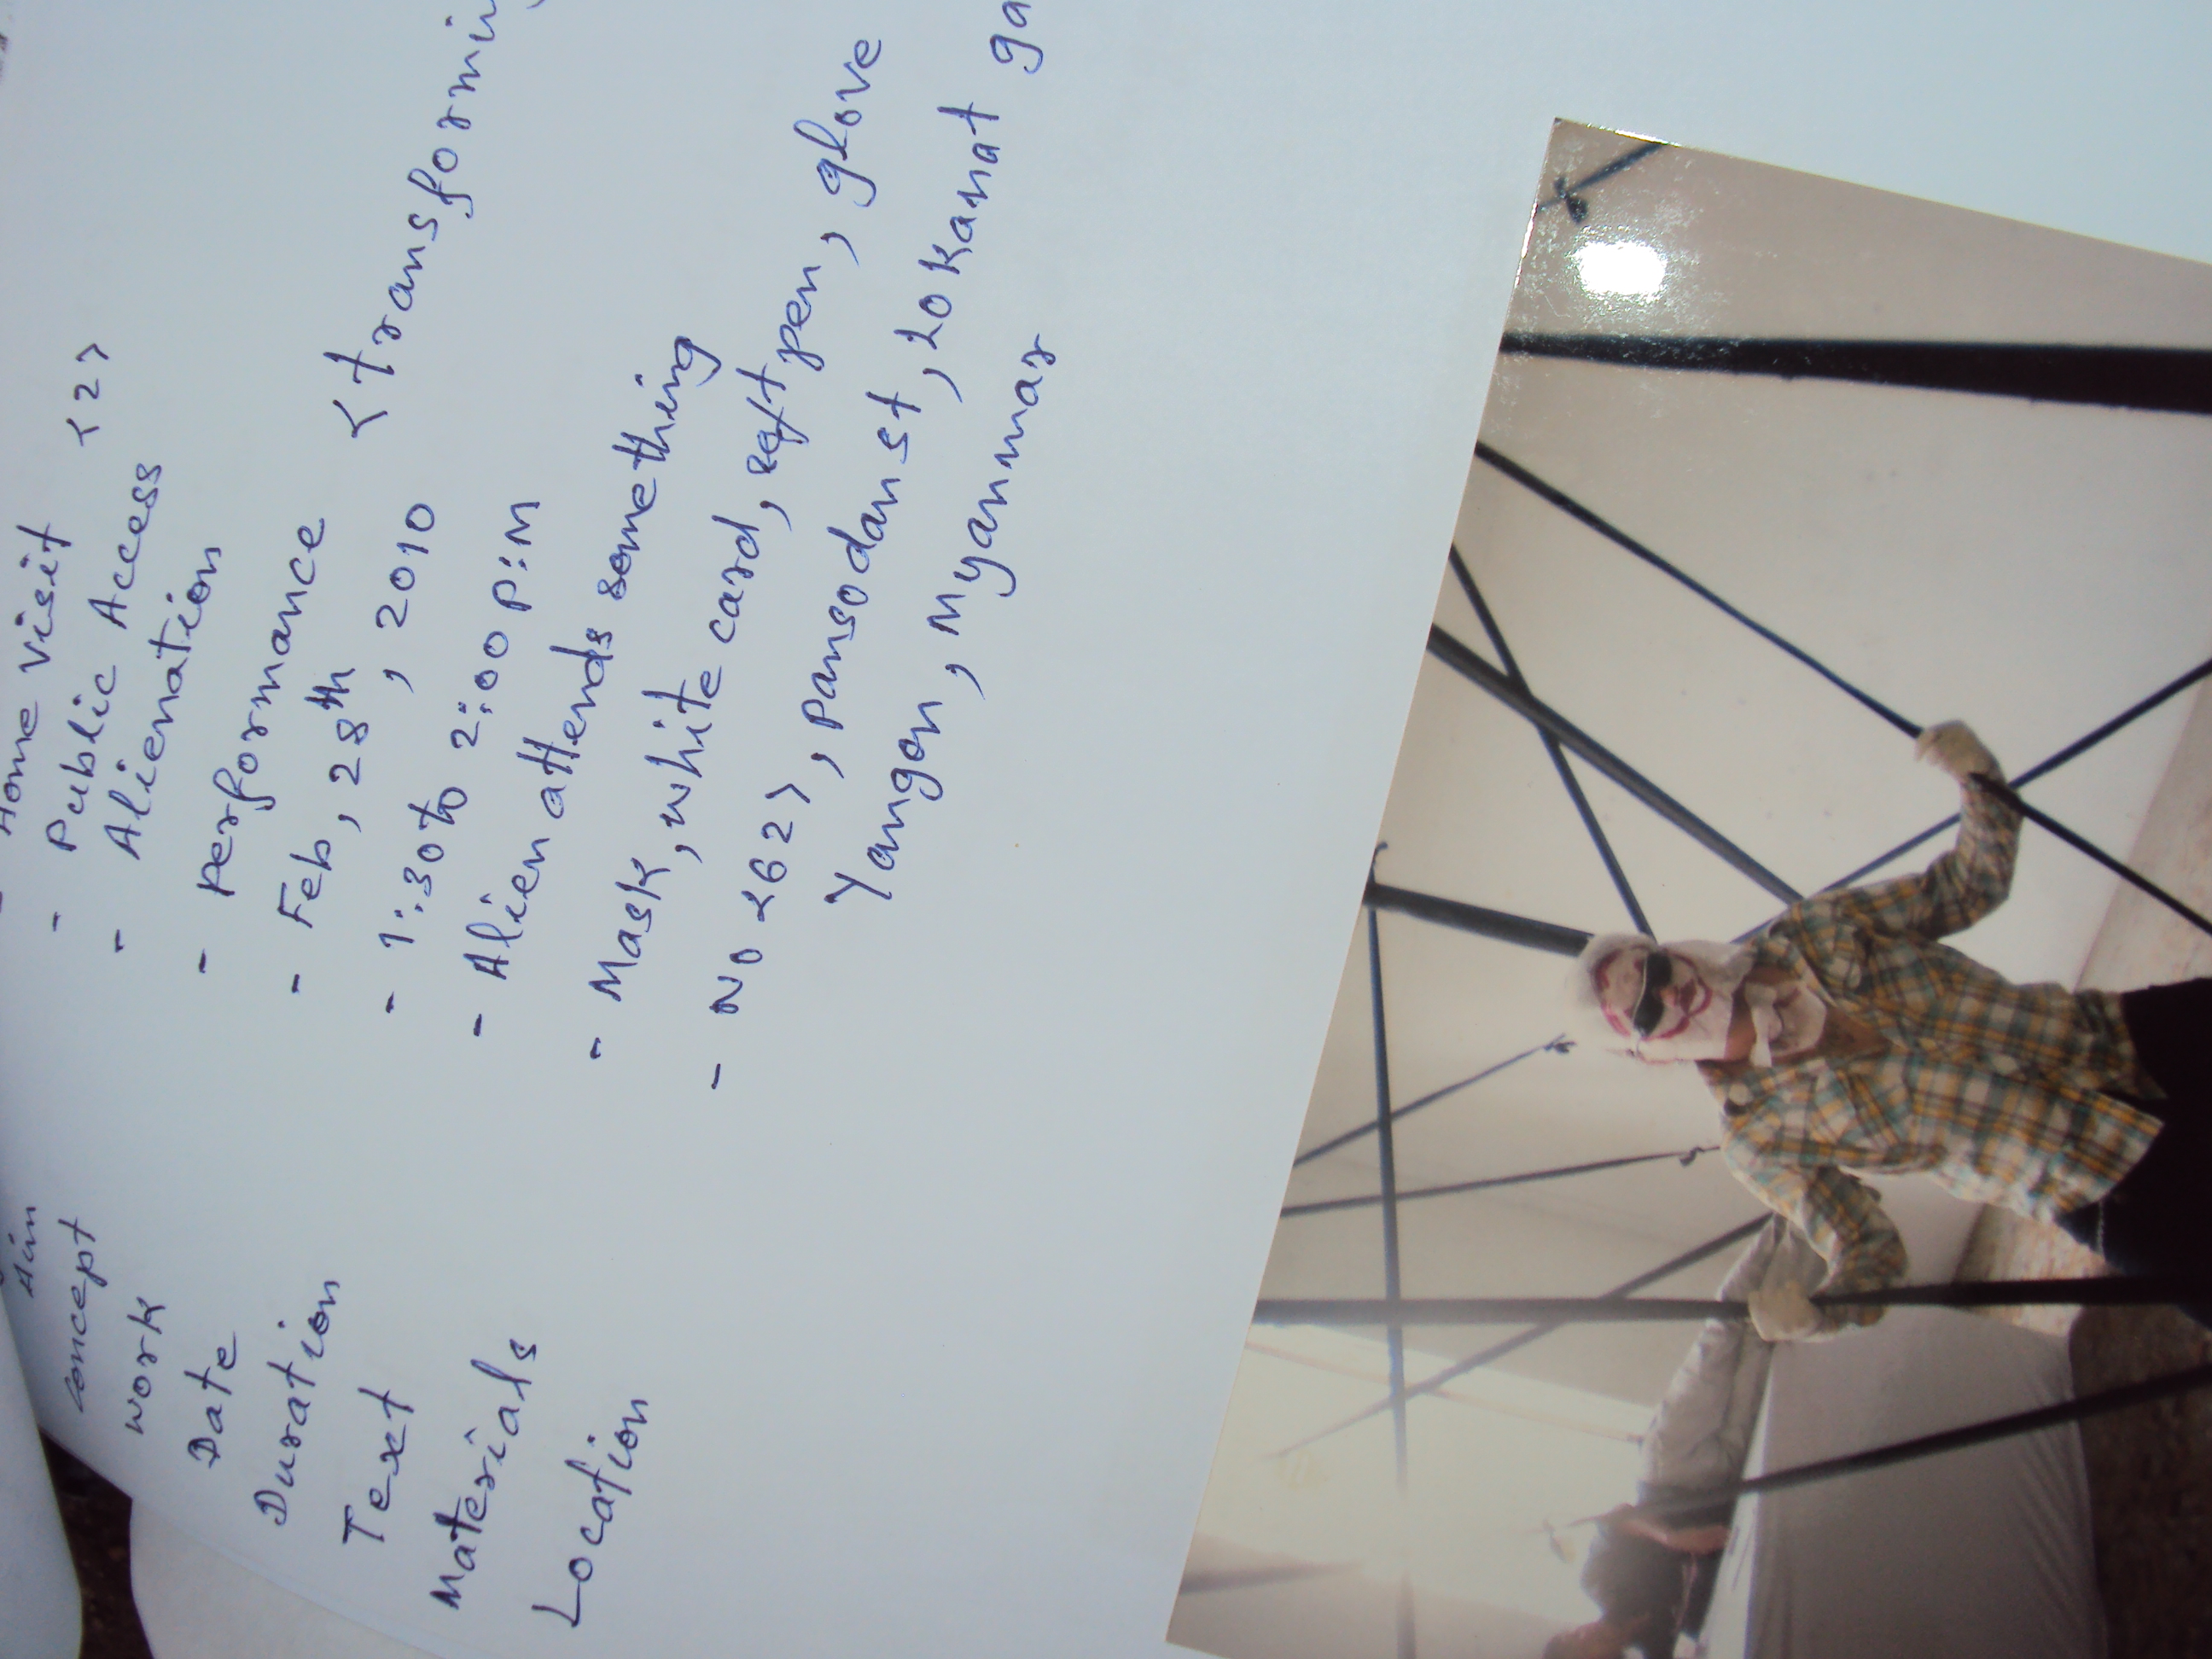 - Home visit <2>
Aim - Public Access
Concept - Alienation
Work - Performance <transformi
Date - Feb, 28th, 2010
Duration - 1:30 to 2:00 P:M
Text - Alien attends something
Materials - Mask, white card, pen, glove
Location - No <262>, Pansodan st, 20 Kanat ga
Yangon, Myanmar